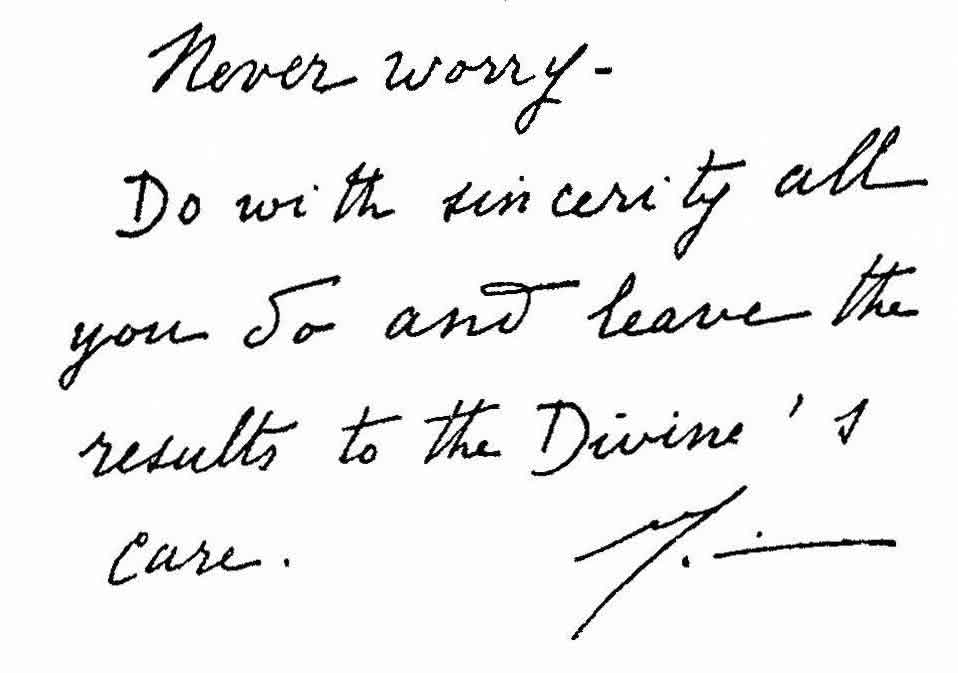 Never worry -
Do with sincerity all
you do and leave the
results to the Divine's
care.